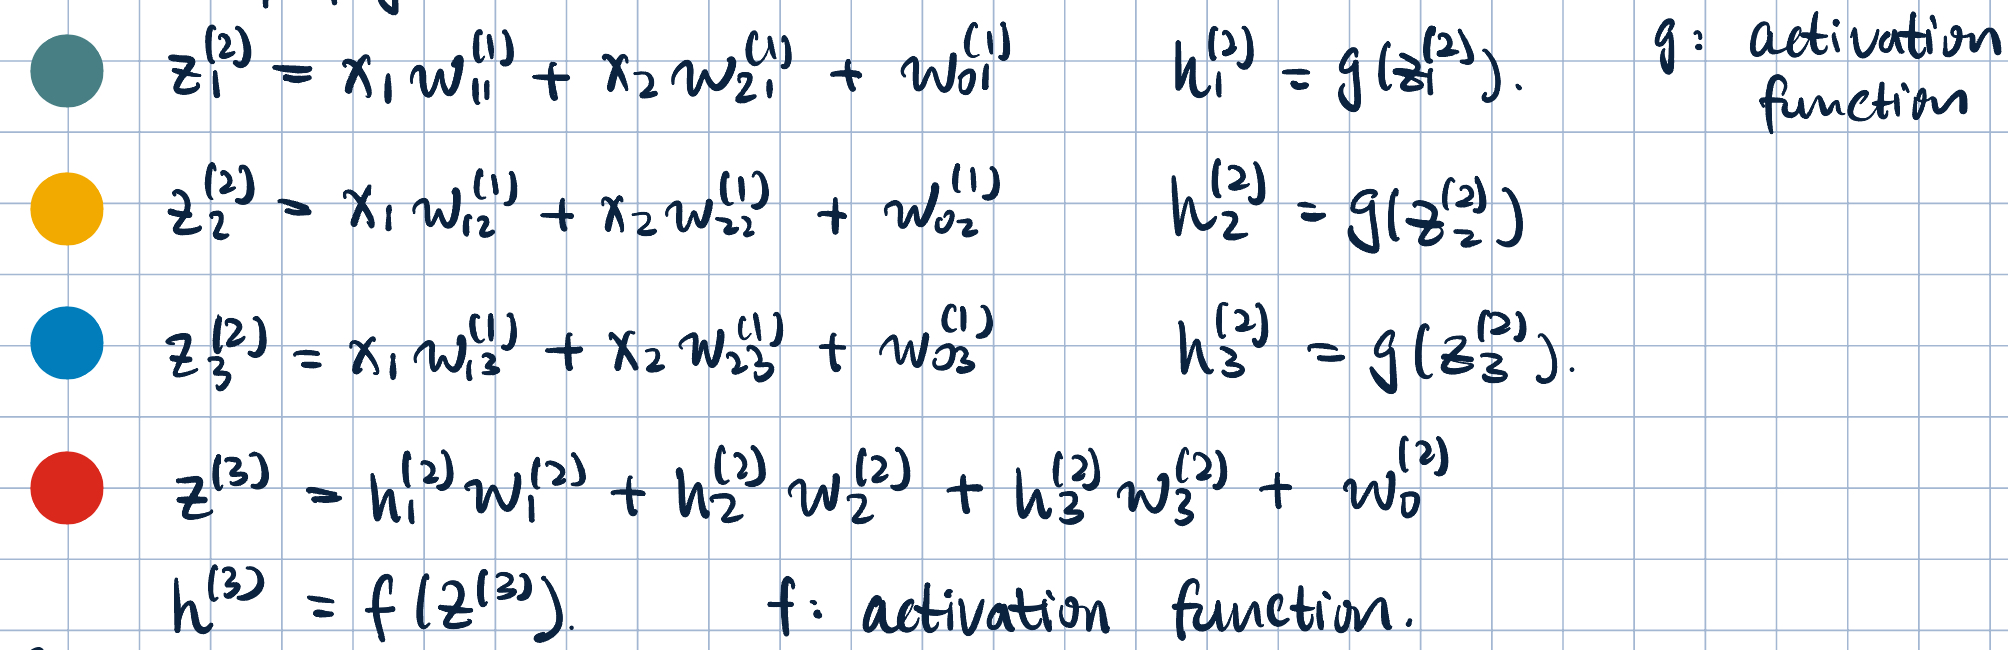 z₁⁽²⁾ = x₁ w₁₁⁽¹⁾ + x₂ w₂₁⁽¹⁾ + w₀₁⁽¹⁾ h₁⁽²⁾ = g(z₁⁽²⁾). g: activation
function
z₂⁽²⁾ = x₁ w₁₂⁽¹⁾ + x₂ w₂₂⁽¹⁾ + w₀₂⁽¹⁾ h₂⁽²⁾ = g(z₂⁽²⁾)
z₃⁽²⁾ = x₁ w₁₃⁽¹⁾ + x₂ w₂₃⁽¹⁾ + w₀₃⁽¹⁾ h₃⁽²⁾ = g(z₃⁽²⁾).
z⁽³⁾ = h₁⁽²⁾ w₁⁽²⁾ + h₂⁽²⁾ w₂⁽²⁾ + h₃⁽²⁾ w₃⁽²⁾ + w₀⁽²⁾
h⁽³⁾ = f(z⁽³⁾). f: activation function.